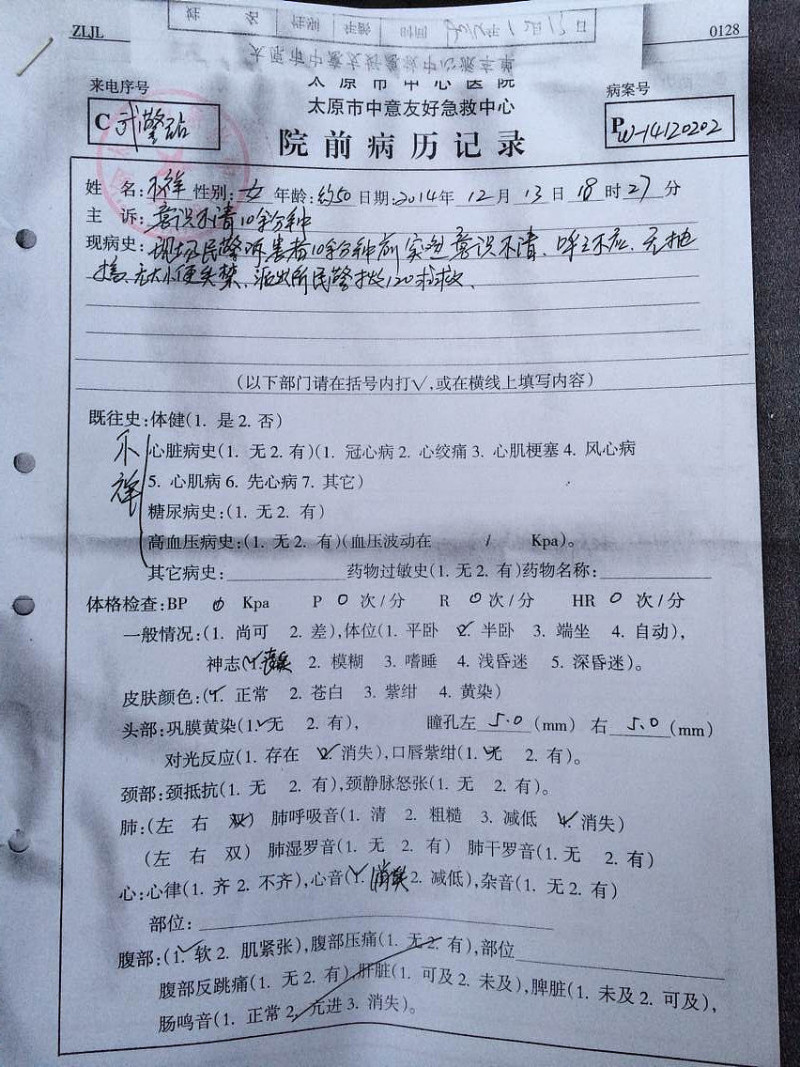 ZLJL
姓 名 性别 年龄 时间
0128
太原市中意友好急救中心派车单
太原市中心医院
来电序号
病案号
太原市中意友好急救中心
C
PW-14120202
院前病历记录
姓 名:不详 性别:女 年龄:约50 日期:2014年 12 月 13 日 18 时 27 分
主 诉:意识不清10余分种
现病史:现场民警诉患者10余分种前突进意识不清、呼之不应、无抽
搐、无大小便失禁、派出所民警拨120求救、
(以下部门请在括号内打√,或在横线上填写内容)
既往史:体健(1. 是2. 否)
不详
心脏病史(1. 无2. 有)(1. 冠心病 2. 心绞痛 3. 心肌梗塞 4. 风心病
5. 心肌病 6. 先心病 7. 其它)
糖尿病史:(1. 无2. 有)
高血压病史:(1. 无2. 有)(血压波动在 / Kpa)。
其它病史: 药物过敏史(1. 无2. 有)药物名称:
体格检查:BP 0 Kpa P 0 次/分 R 0 次/分 HR 0 次/分
一般情况:(1. 尚可 2. 差),体位(1. 平卧 2. 半卧 3. 端坐 4. 自动),
神志(1. 丧失 2. 模糊 3. 嗜睡 4. 浅昏迷 5. 深昏迷)。
皮肤颜色:(1. 正常 2. 苍白 3. 紫绀 4. 黄染)
头部:巩膜黄染(1. 无 2. 有), 瞳孔左 5.0 (mm) 右 5.0 (mm)
对光反应(1. 存在 2. 消失),口唇紫绀(1. 无 2. 有)。
颈部:颈抵抗(1. 无 2. 有),颈静脉怒张(1. 无 2. 有)。
肺:(左 右 双) 肺呼吸音(1. 清 2. 粗糙 3. 减低 4. 消失)
(左 右 双) 肺湿罗音(1. 无 2. 有) 肺干罗音(1. 无 2. 有)
心:心律(1. 齐 2. 不齐),心音(1. 消失 2. 减低),杂音(1. 无 2. 有)
部位:
腹部:(1. 软 2. 肌紧张),腹部压痛(1. 无 2. 有),部位
腹部反跳痛(1. 无 2. 有),肝脏(1. 可及 2. 未及),脾脏(1. 未及 2. 可及),
肠鸣音(1. 正常 2. 亢进 3. 消失)。